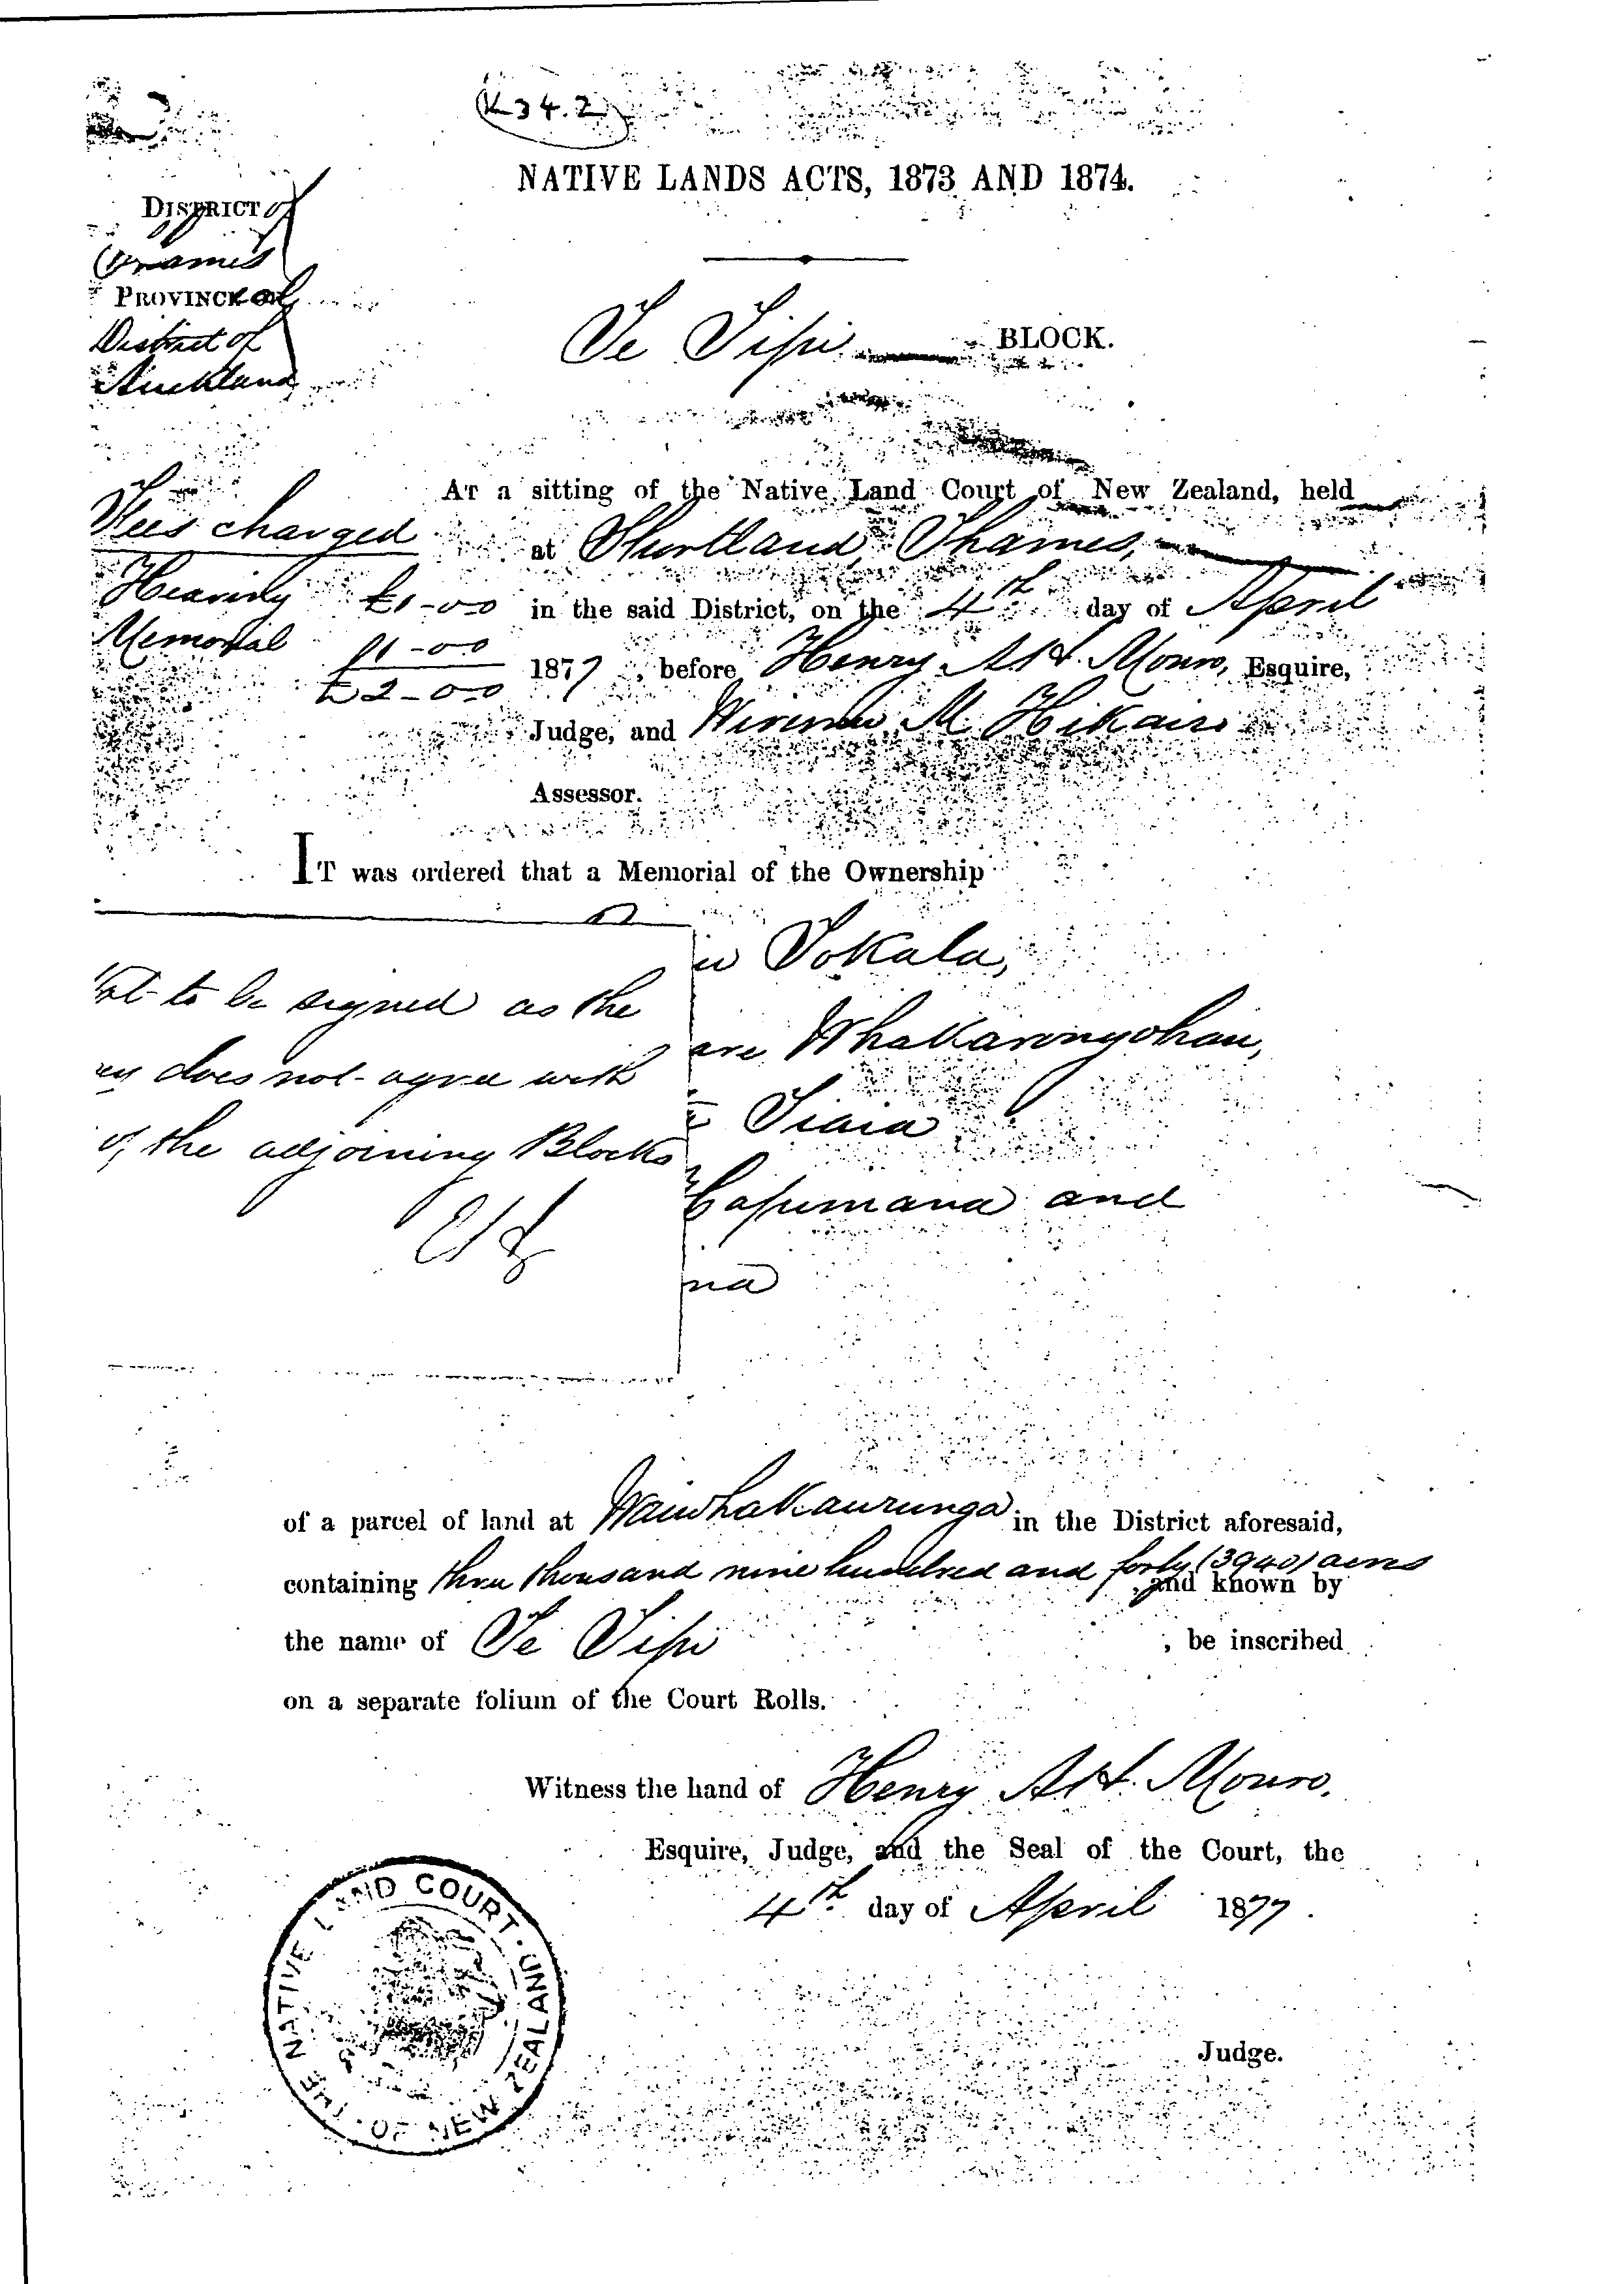 (K 34.2)
NATIVE LANDS ACTS, 1873 AND 1874.
DISTRICT of
Thames
PROVINCIAL
District of
Auckland
Te Tipi BLOCK.
AT a sitting of the Native Land Court of New Zealand, held
Fees charged
at Shortland, Thames,
Hearing £1-0-0
in the said District, on the 4th day of April
Memorial £1-0-0
1877, before Henry A H. Monro, Esquire,
£2-0-0
Judge, and Wiremu M Hikairo
Assessor.
IT was ordered that a Memorial of the Ownership
Tokala,
to be signed as the
Whakarongohau,
does not agree with
Tiaia
of the adjoining Blocks
and
na
of a parcel of land at Waiwhakaurunga in the District aforesaid,
containing three thousand nine hundred and forty (3940) acres, and known by
the name of Te Tipi, be inscribed
on a separate folium of the Court Rolls.
Witness the hand of Henry A H. Monro.
Esquire, Judge, and the Seal of the Court, the
4th day of April 1877.
THE NATIVE LAND COURT OF NEW ZEALAND
Judge.